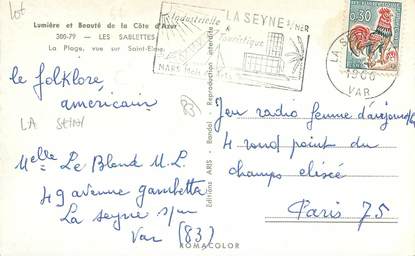 Lot
Lumière et Beauté de la Côte d'Azur
300-79 — LES SABLETTES
La Plage, vue sur Saint-Elme
le folklore
américain
LA
83
Melle Le Blond M.L.
49 avenue gambetta
La Seyne s/m
Var (83)
Editions ARIS - Bandol - Reproduction interdite
ROMACOLOR
Industrielle
&
Touristique
LA SEYNE S/MER
MARS
LA SE
1966
VAR
0,30
Jeu radio femme d'aujourd'
4 rond point du
champs elisée
Paris 75